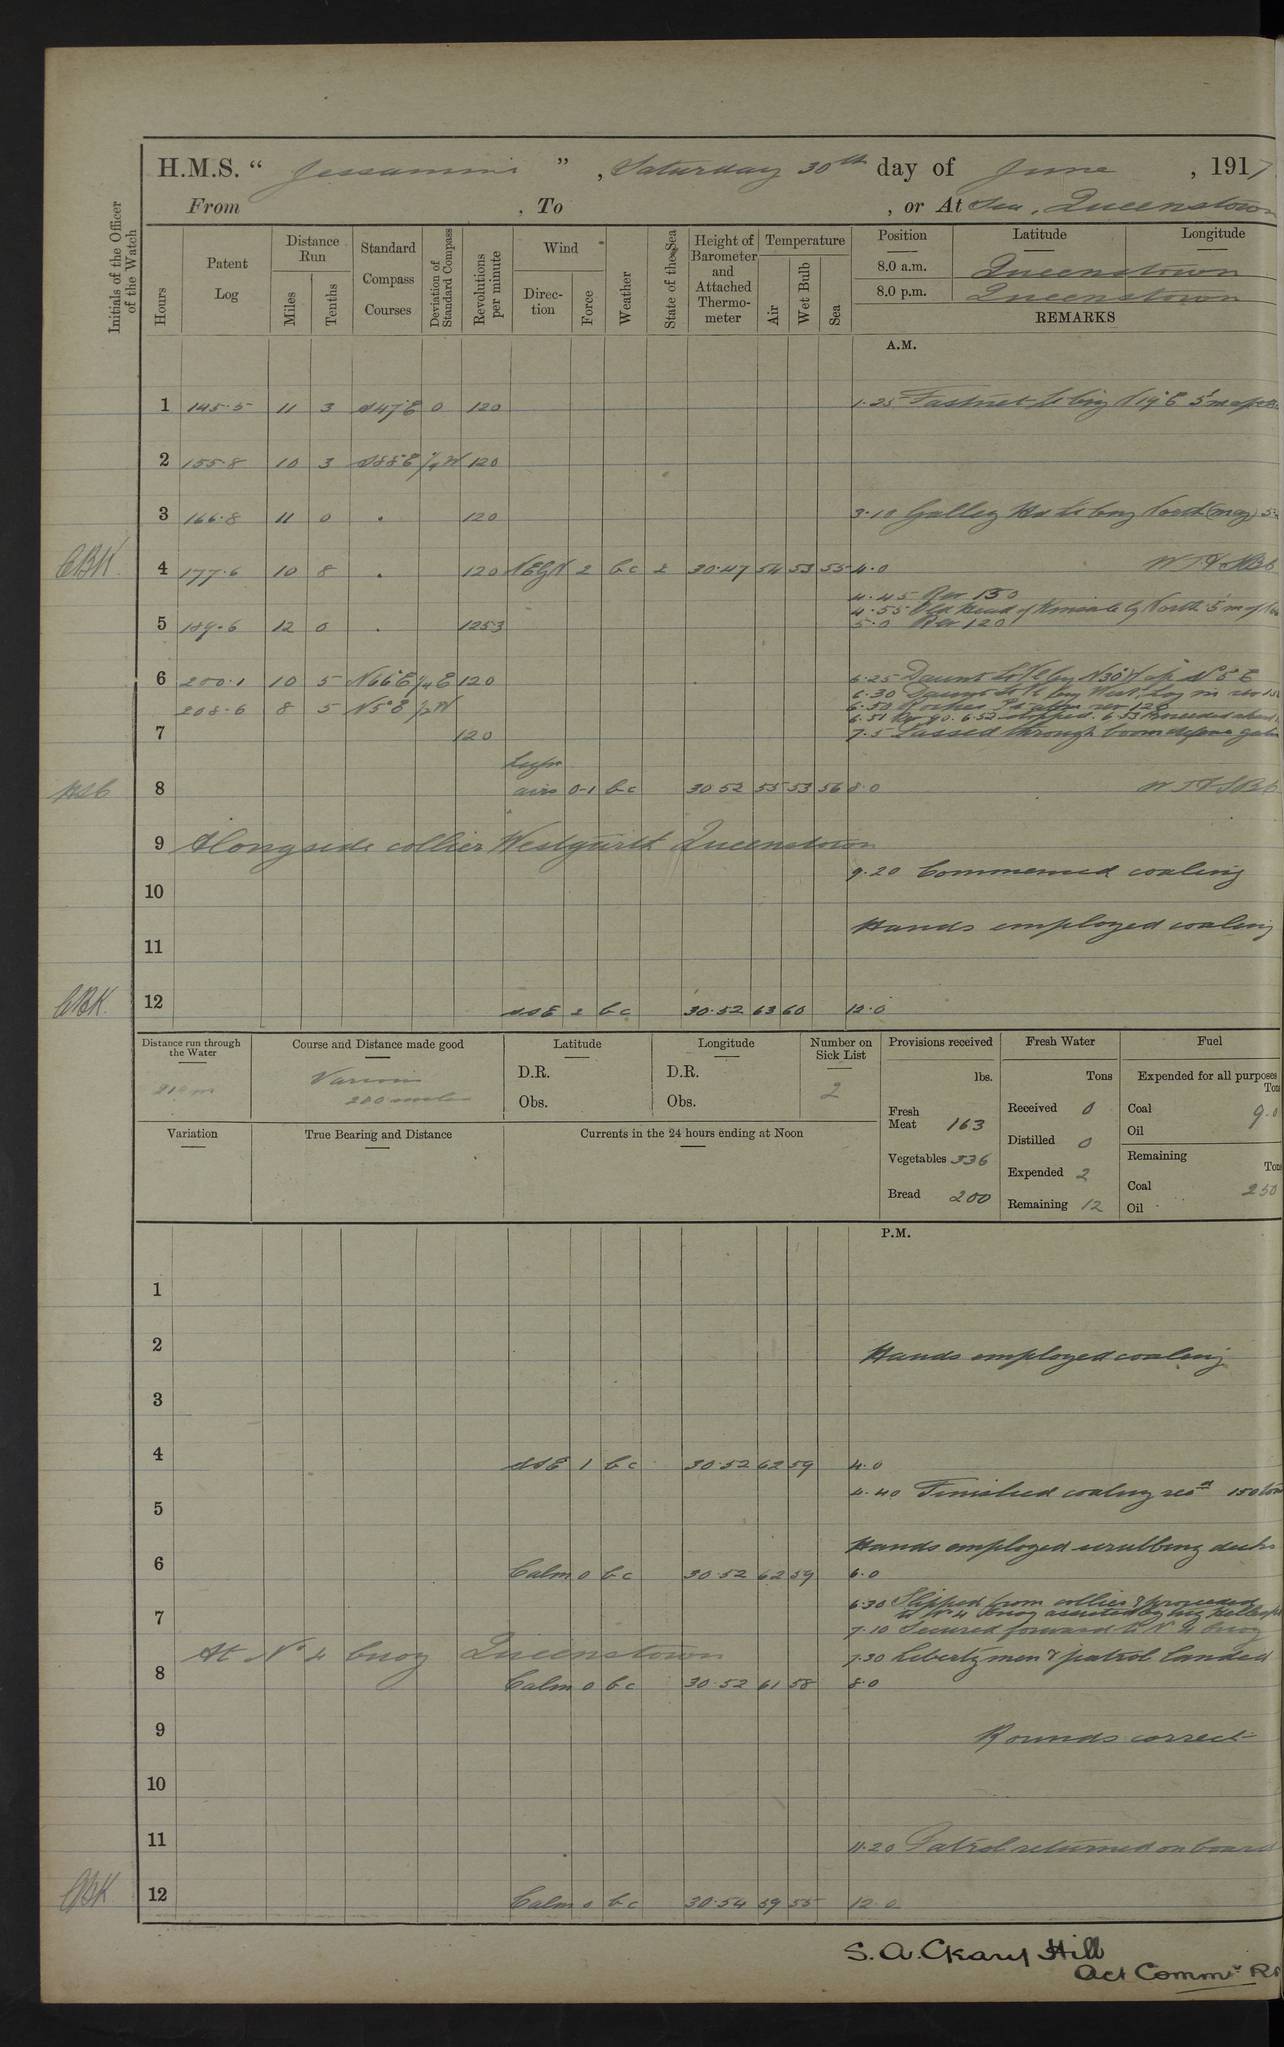 H.M.S. “ Jessamine ” , Saturday 30th day of June , 1917
From , To , or At Sea, Queenstown
Initials of the Officer of the Watch
Hours
Patent Log
Distance Run
Miles
Tenths
Standard Compass Courses
Deviation of Standard Compass
Revolutions per minute
Wind
Direction
Force
Weather
State of the Sea
Height of Barometer and Attached Thermometer
Temperature
Air
Wet Bulb
Sea
Position Latitude Longitude
8.0 a.m. Queenstown
8.0 p.m. Queenstown
REMARKS
A.M.
1 145.5 11 3 S47°E 0 120 1.25 Fastnet
2 155.8 10 3 S88°E ¼W 120
3 166.8 11 0 . 120 3.10 Galley
CBK 4 177.6 10 8 . 120 2 bc 2 30.47 54 53 55 4.0
4.45 Rev 130
4.55 Old Head of Kinsale North 5'
5 189.6 12 0 . 125.3 5.0 Rev 120
6 200.1 10 5 N66°E ¼E 120 6.25 Daunt
6.30 Daunt West,
208.6 8 5 N5°E ½W 6.50 Roches Pt rev 120
6.51 Rev 90. 6.52 stopped. 6.53 Proceeded
7 120 7.5 Passed through boom defence
8 airs 0-1 bc 30.52 55 53 56 8.0
9 Alongside collier Westgarth Queenstown
9.20 Commenced coaling
10
Hands employed coaling
11
CBK. 12 SSE 2 bc 30.52 63 60 12.0
Distance run through the Water
210 m
Course and Distance made good
Various
200 miles
Latitude
D.R.
Obs.
Longitude
D.R.
Obs.
Number on Sick List
2
Provisions received
lbs.
Fresh Meat 163
Vegetables 336
Bread 200
Fresh Water
Tons
Received 0
Distilled 0
Expended 2
Remaining 12
Fuel
Expended for all purposes
Tons
Coal 9.0
Oil
Remaining
Coal 250
Oil
Variation
True Bearing and Distance
Currents in the 24 hours ending at Noon
P.M.
1
2
Hands employed coaling
3
4 SSE 1 bc 30.52 62 59 4.0
4.40 Finished coaling recd 150 tons
5
Hands employed scrubbing decks
6 Calm 0 bc 30.52 62 59 6.0
6.30 Slipped from collier & proceeded
to No 4 buoy assisted by tug
7 7.10 Secured forward to No 4 buoy
At No 4 buoy Queenstown 7.30 Liberty men & patrol landed
8 Calm 0 bc 30.52 61 58 8.0
9 Rounds correct
10
11 11.20 Patrol returned on board
CBK 12 Calm 0 bc 30.54 59 55 12.0
S. A. Geary Hill
Act Commr